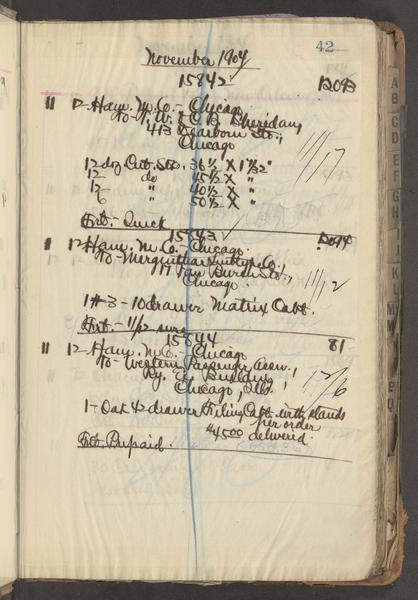 42
November 1904
15842 ✓ 12093
11 12 Ham. M. Co. - Chicago
To - W. & O. B. Sheridan,
413 Dearborn St.,
Chicago 11/17
12 doz Out. Sts. 36½ X 1½"
12 do 45½ X "
12 " 40½ X "
6 " 50½ X "
Frt - Quick
15843 ✓ 12094
11 12 Ham. M. Co. - Chicago.
To - Mergenthaler Linotype Co.
Van Buren St.,
Chicago. 11/12
1 # 3 - 10 drawer Matrix Cabt.
Frt. - 11/12 sure
15844 81
11 12 Ham. M. Co. - Chicago
To - Western Passenger Assn.,
Ry. Ex. Building,
Chicago, Ills. 12/6
1 - Oak 42 drawer Filing Cabt. with stands
per order
$45.00 delivered.
Frt. Prepaid.
A
B
C
D
E
F
G
H
I
J
K
L
M